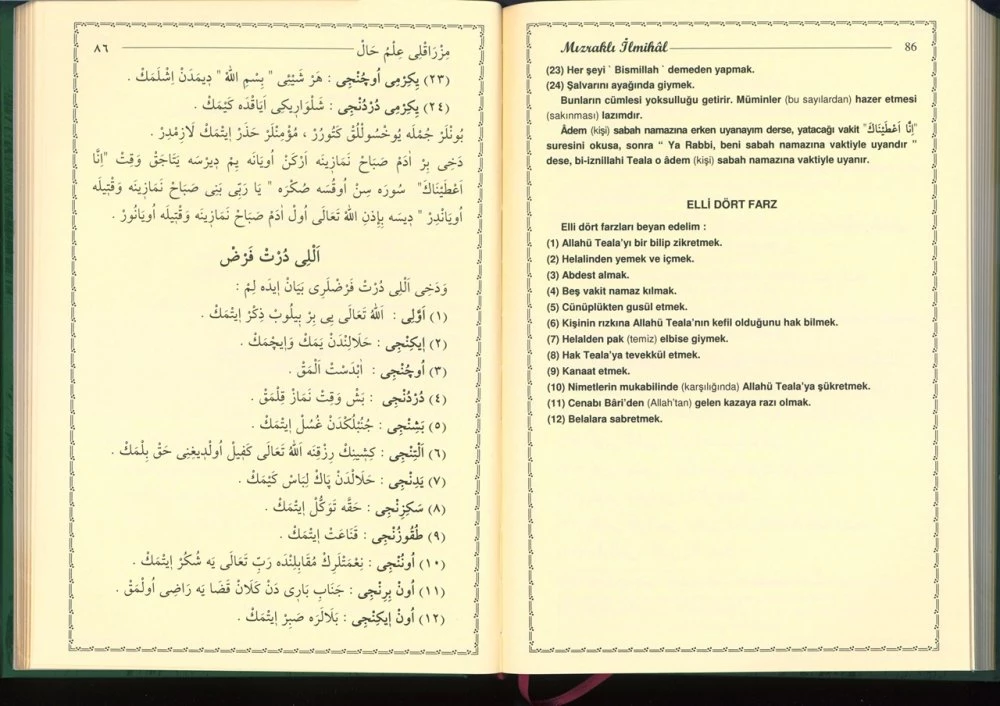 ٨٦ مِزْرَاقْلِى عِلْمُ حَالْ
(٢٣) يِكِرْمِى اُوچُنْجِى : هَرْ شَيْئِى " بِسْمِ اللّٰهْ " دِيمَدَنْ اِشْلَمَكْ .
(٢٤) يِكِرْمِى دُرْدُنْجِى : شَلْوَارِيكِى اَيَاقْدَه كَيْمَكْ .
بُونْلَرْ جُمْلَه يُوخْسُولْلُقْ كَتُورُرْ ، مُؤْمِنْلَرْ حَذَرْ اِيتْمَكْ لَازِمْدِرْ .
دَخِى بِرْ اٰدَمْ صَبَاحْ نَمَازِينَه اَرْكَنْ اُويَانَه يِمْ دِيرْسَه يَتَاجَقْ وَقِتْ "اِنَّا
اَعْطَيْنَاكَ" سُورَه سِنْ اُوقُسَه صُكْرَه " يَا رَبِّى بَنِى صَبَاحْ نَمَازِينَه وَقْتِيلَه
اُويَانْدِرْ " دِيسَه بِاِذْنِ اللّٰهُ تَعَالَى اُولْ اٰدَمْ صَبَاحْ نَمَازِينَه وَقْتِيلَه اُويَانُورْ .
اَللِى دُرْتْ فَرْضْ
وَدَخِى اَللِى دُرْتْ فَرْضْلَرِى بَيَانْ اِيدَه لِمْ :
(١) اَوَّلِى : اَللّٰهُ تَعَالَى يِى بِرْ بِيلُوبْ ذِكْرْ اِيتْمَكْ .
(٢) اِيكِنْجِى : حَلَالِنْدَنْ يَمَكْ وَاِيچْمَكْ .
(٣) اُوچُنْجِى : اَبْدَسْتْ اَلْمَقْ .
(٤) دُرْدُنْجِى : بَشْ وَقِتْ نَمَازْ قِلْمَقْ .
(٥) بَشِنْجِى : جُنُبْلُكْدَنْ غُسُلْ اِيتْمَكْ .
(٦) اَلْتِنْجِى : كِشِينِكْ رِزْقِنَه اَللّٰهُ تَعَالَى كَفِيلْ اُولْدِيغِنِى حَقْ بِلْمَكْ .
(٧) يَدِنْجِى : حَلَالْدَنْ پَاكْ لِبَاسْ كَيْمَكْ .
(٨) سَكِزِنْجِى : حَقَّه تَوَكُّلْ اِيتْمَكْ .
(٩) طُقُوزُنْجِى : قَنَاعَتْ اِيتْمَكْ .
(١٠) اُونُنْجِى : نِعْمَتْلَرِكْ مُقَابِلِنْدَه رَبِّ تَعَالَى يَه شُكُرْ اِيتْمَكْ .
(١١) اُونْ بِرِنْجِى : جَنَابِ بَارِى دَنْ كَلَانْ قَضَا يَه رَاضِى اُولْمَقْ .
(١٢) اُونْ اِيكِنْجِى : بَلَالَرَه صَبِرْ اِيتْمَكْ .
Mızraklı İlmihâl 86
(23) Her şeyi ` Bismillah ` demeden yapmak.
(24) Şalvarını ayağında giymek.
Bunların cümlesi yoksulluğu getirir. Müminler (bu sayılardan) hazer etmesi
(sakınması) lazımdır.
Âdem (kişi) sabah namazına erken uyanayım derse, yatacağı vakit "اِنَّا اَعْطَيْنَاكَ"
suresini okusa, sonra “ Ya Rabbi, beni sabah namazına vaktiyle uyandır ”
dese, bi-iznillahi Teala o âdem (kişi) sabah namazına vaktiyle uyanır.
ELLİ DÖRT FARZ
Elli dört farzları beyan edelim :
(1) Allahü Teala’yı bir bilip zikretmek.
(2) Helalinden yemek ve içmek.
(3) Abdest almak.
(4) Beş vakit namaz kılmak.
(5) Cünüplükten gusül etmek.
(6) Kişinin rızkına Allahü Teala’nın kefil olduğunu hak bilmek.
(7) Helalden pak (temiz) elbise giymek.
(8) Hak Teala’ya tevekkül etmek.
(9) Kanaat etmek.
(10) Nimetlerin mukabilinde (karşılığında) Allahü Teala’ya şükretmek.
(11) Cenabı Bâri’den (Allah’tan) gelen kazaya razı olmak.
(12) Belalara sabretmek.